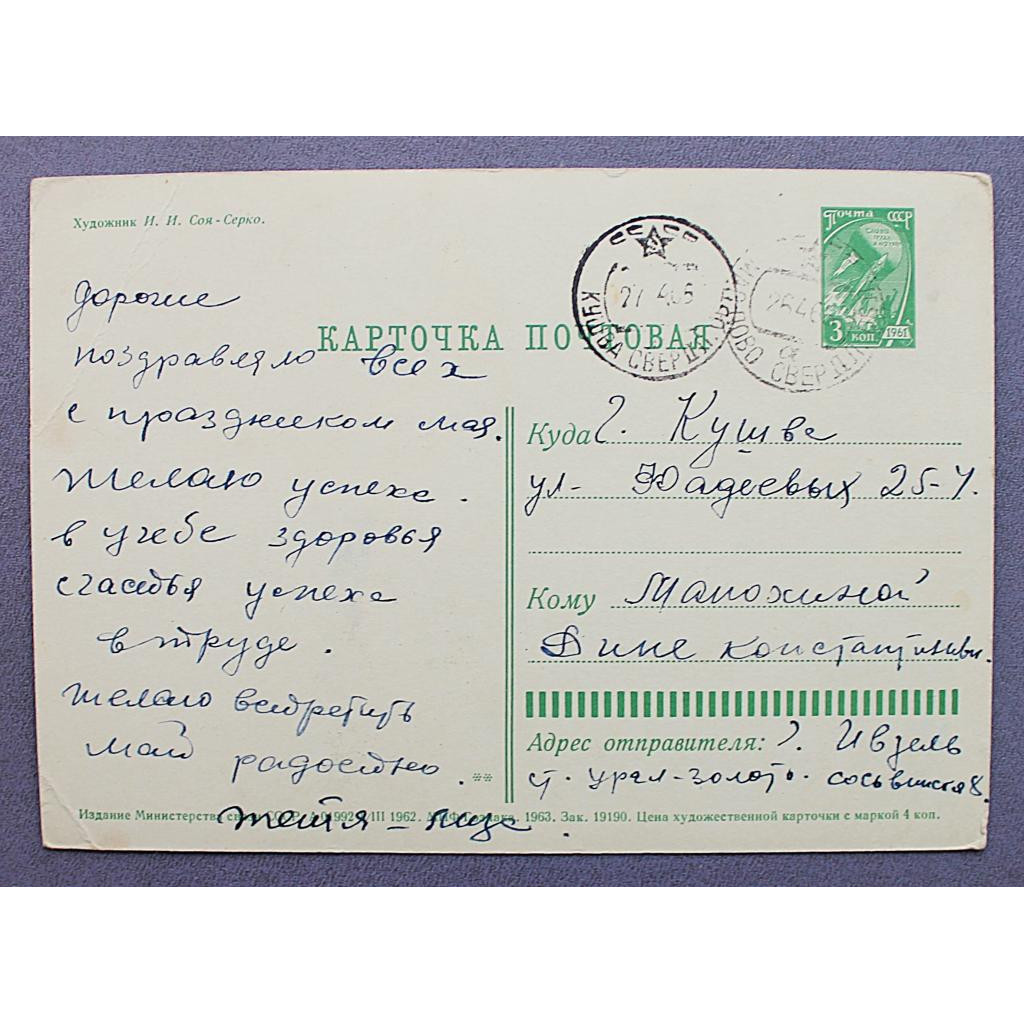 Художник И. И. Соя-Серко.
Почта СССР
СЛАВА
ТРУДА
И НАУКИ
3 коп. 1961
КУШВА СВЕРДЛ.
СВЕРДЛ
КАРТОЧКА ПОЧТОВАЯ
дорогие
поздравляю всех
с праздником мая.
желаю успеха.
в учебе здоровья
счастья успеха
в труде.
желаю встретить
май радостно.
**
тётя -
Куда г. Кушва
ул- Фадеевых 25-4.
Кому Манохиной
Дине константиновн.
Адрес отправителя: г. Ивдель
ст. урал-золото. сосьвинская 8.
Издание Министерства связи СССР. 1962. 1963. Зак. 19190. Цена художественной карточки с маркой 4 коп.